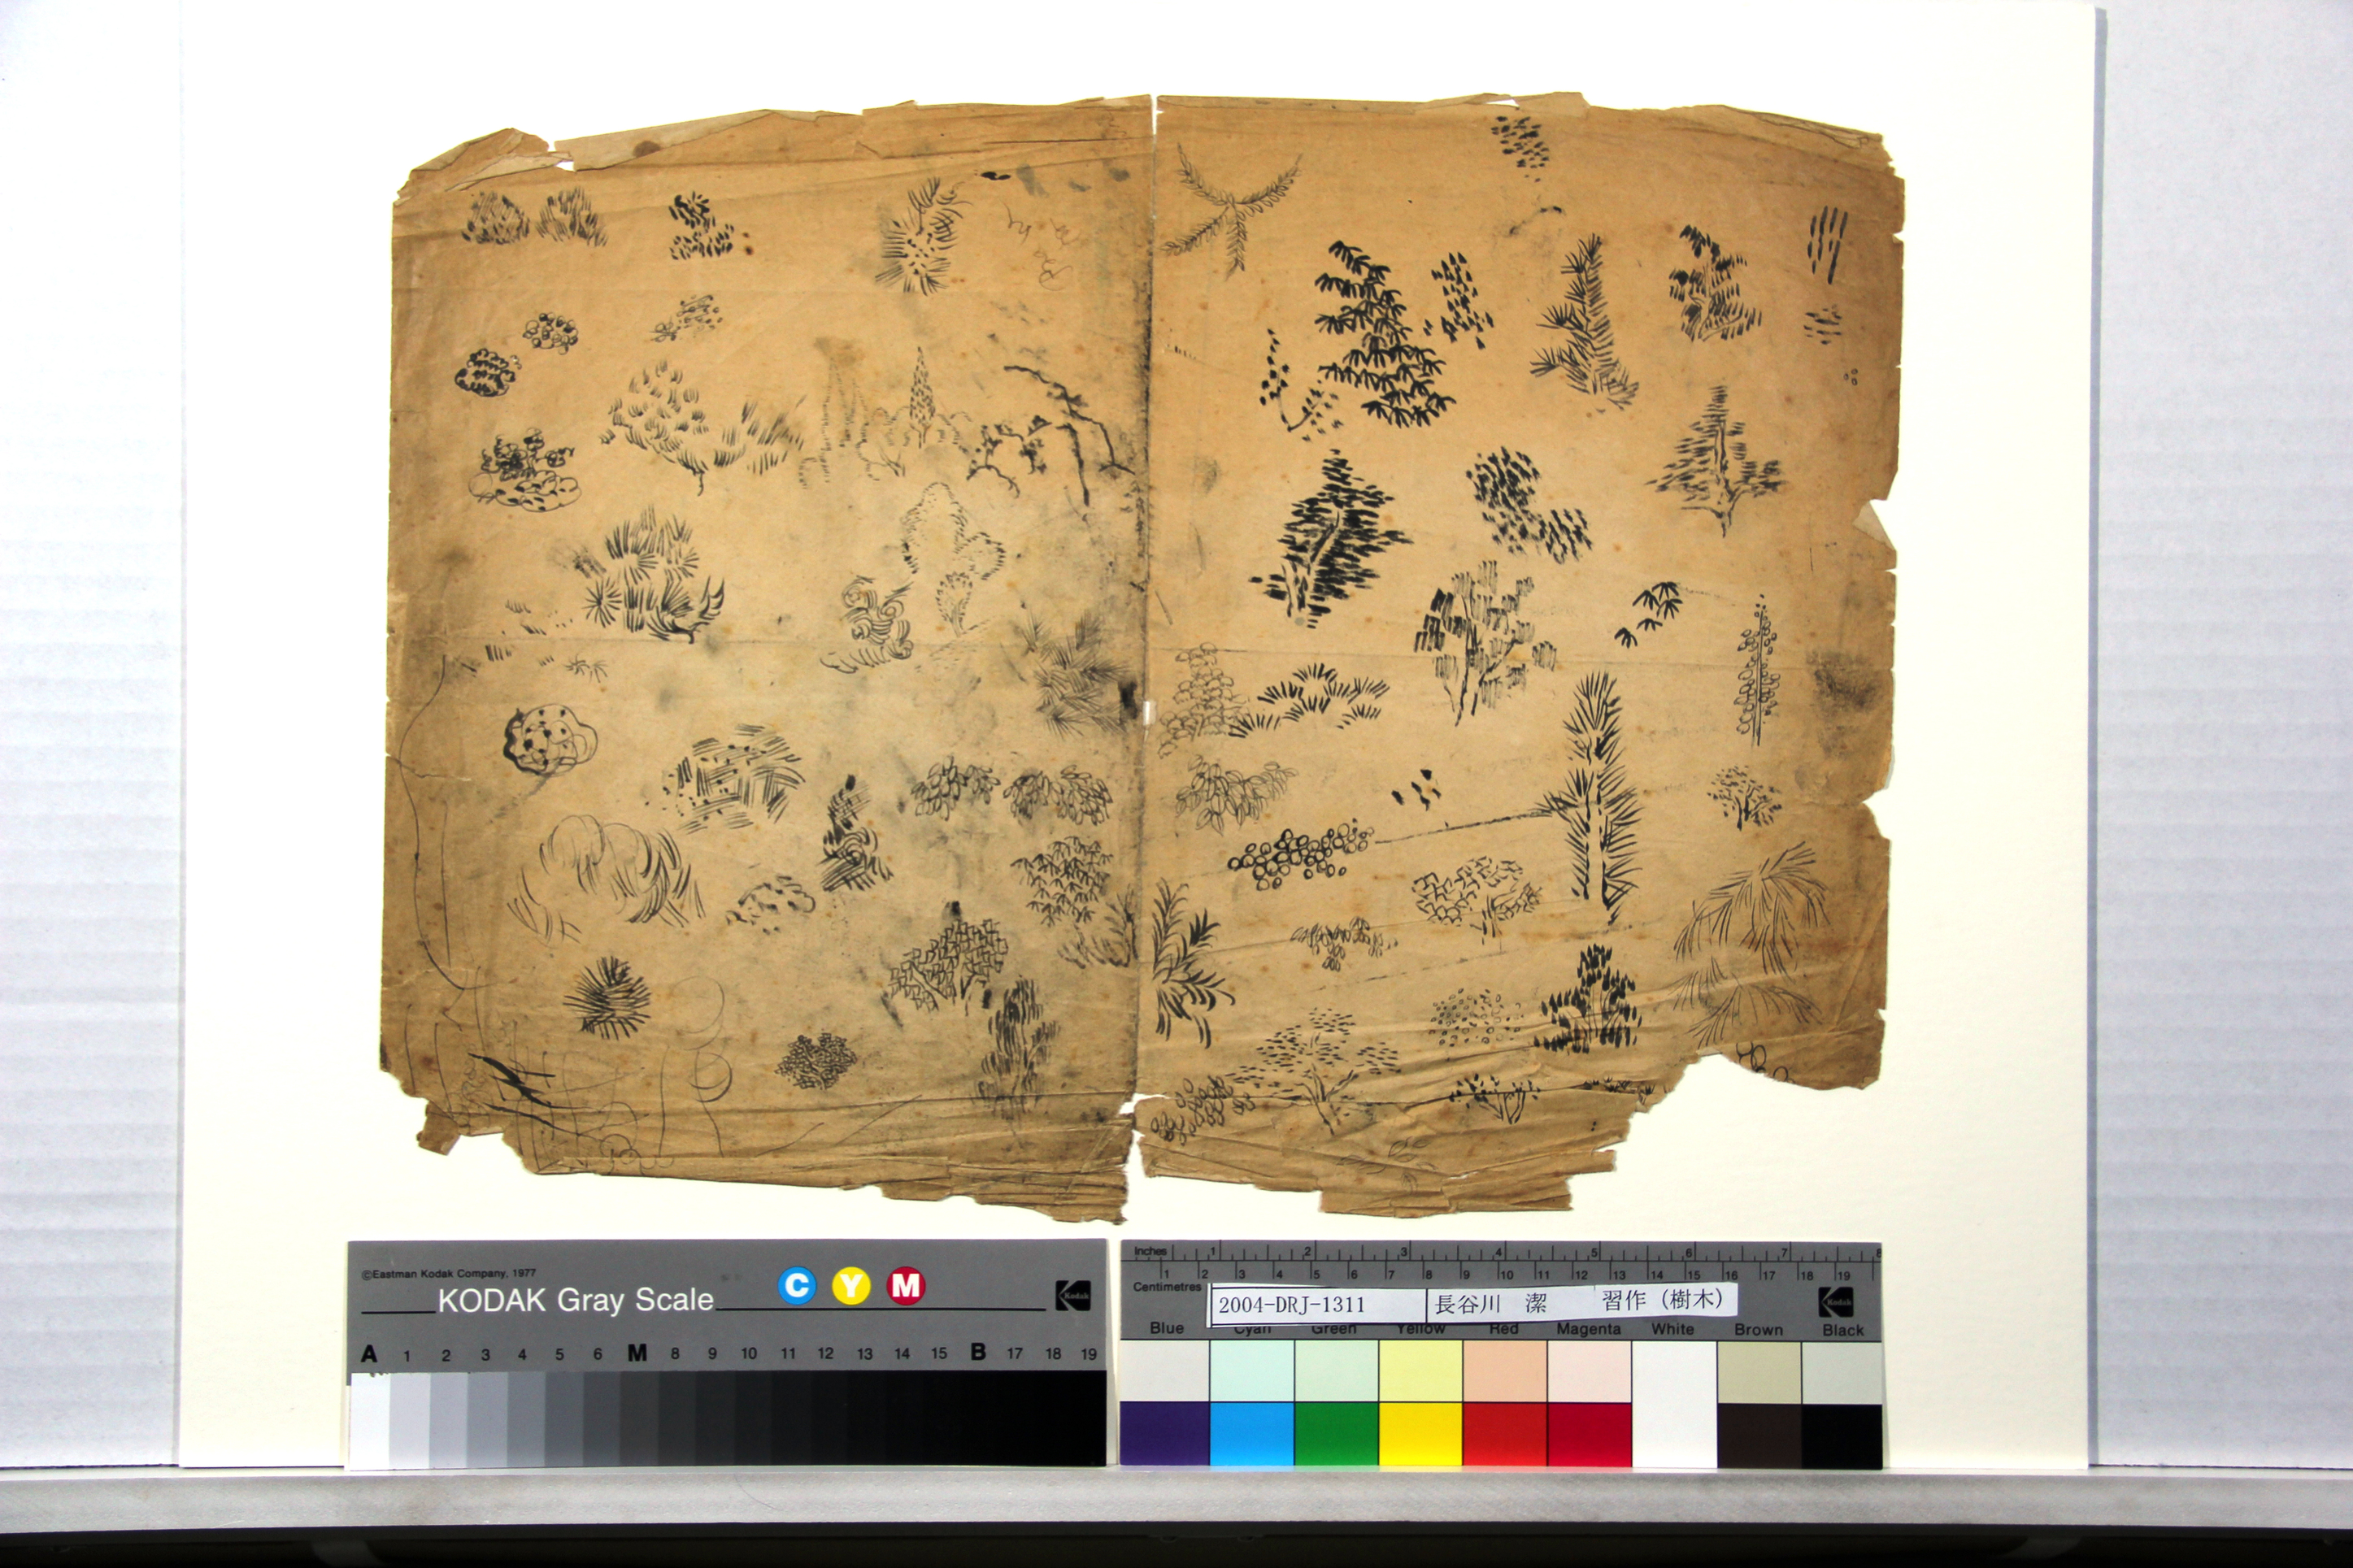 ©Eastman Kodak Company, 1977
KODAK Gray Scale
C Y M
Kodak
A 1 2 3 4 5 6 M 8 9 10 11 12 13 14 15 B 17 18 19
Inches 1 2 3 4 5 6 7 8
1 2 3 4 5 6 7 8 9 10 11 12 13 14 15 16 17 18 19
Centimetres
2004-DRJ-1311 長谷川 潔 習作（樹木）
Kodak
Blue Cyan Green Yellow Red Magenta White Brown Black